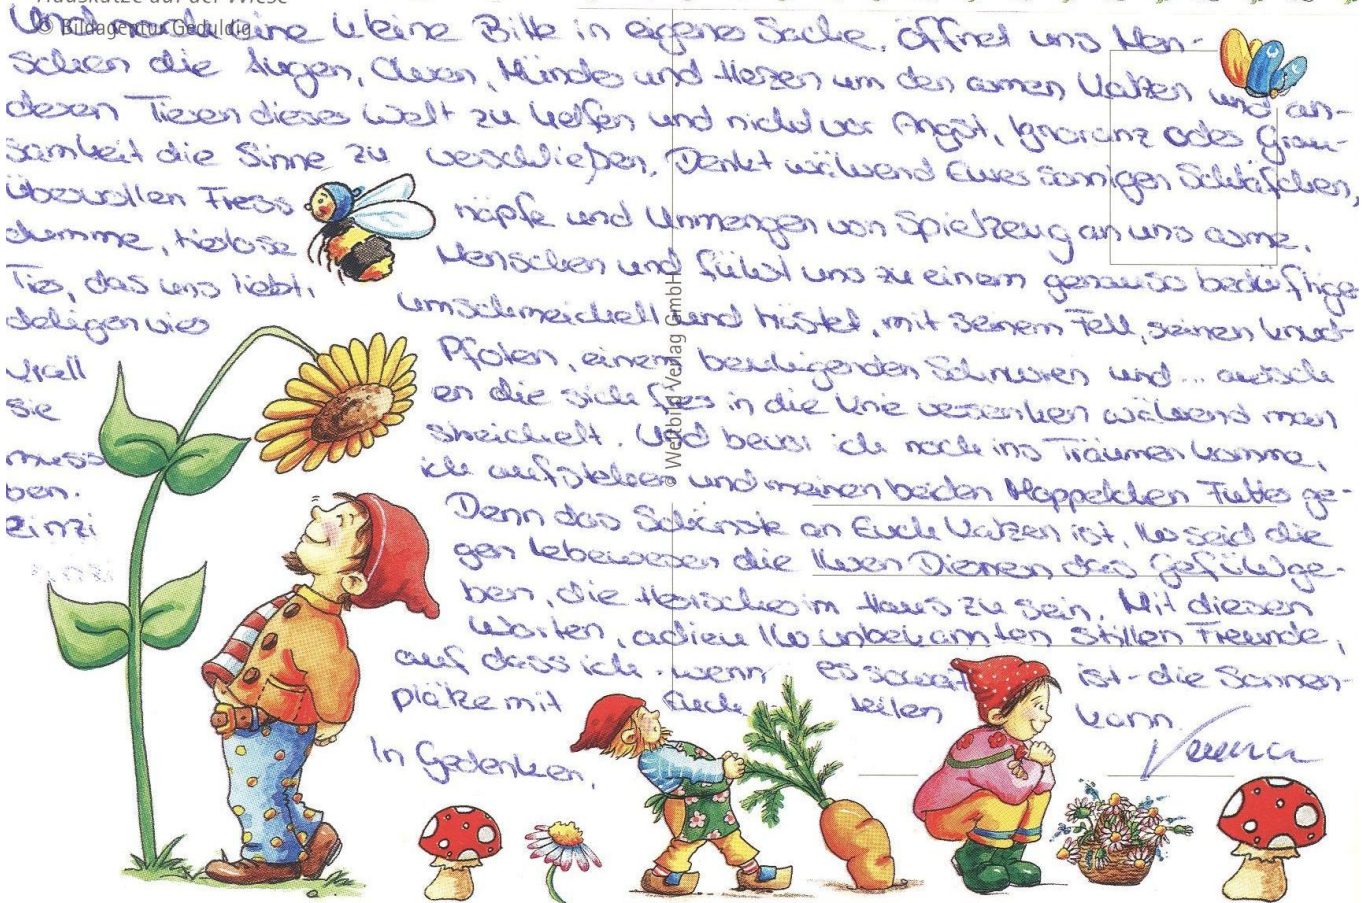 Hauskatze auf der Wiese
© Bildagentur Geduldig
Und noch eine kleine Bitte in eigener Sache, öffnet uns Men-
schen die Augen, Ohren, Münder und Herzen um den armen Katzen und an-
deren Tieren dieser Welt zu helfen und nicht vor Angst, Ignoranz oder Grau-
samkeit die Sinne zu verschließen. Denkt während Eures sonnigen Schläfchen,
übervollen Fress näpfe und Unmengen von Spielzeug an uns arme,
dumme, hirnlose Menschen und führt uns zu einem genauso bedürftigen
Tier, das uns liebt, umschmeichelt und tröstet, mit seinem Fell, seinen knud-
deligen vier Pfoten, einem beruhigenden Schnurren und ...
Krall en die sich fies in die Knie versenken während man
sie streichelt. Und bevor ich noch ins Träumen komme,
muss ich aufstehen und meinen beiden Moppelchen Futter ge-
ben. Denn das Schönste an Euch Katzen ist, Ihr seid die
einzi gen Lebewesen die Ihren Dienern das Gefühl ge-
ben, die Herrscher im Haus zu sein. Mit diesen
Worten, adieu Ihr unbekannten stillen Freunde,
auf dass ich - wenn es soweit ist - die Sonnen-
plätze mit Euch teilen kann.
In Gedenken,
Verena
© Weltbild Verlag GmbH